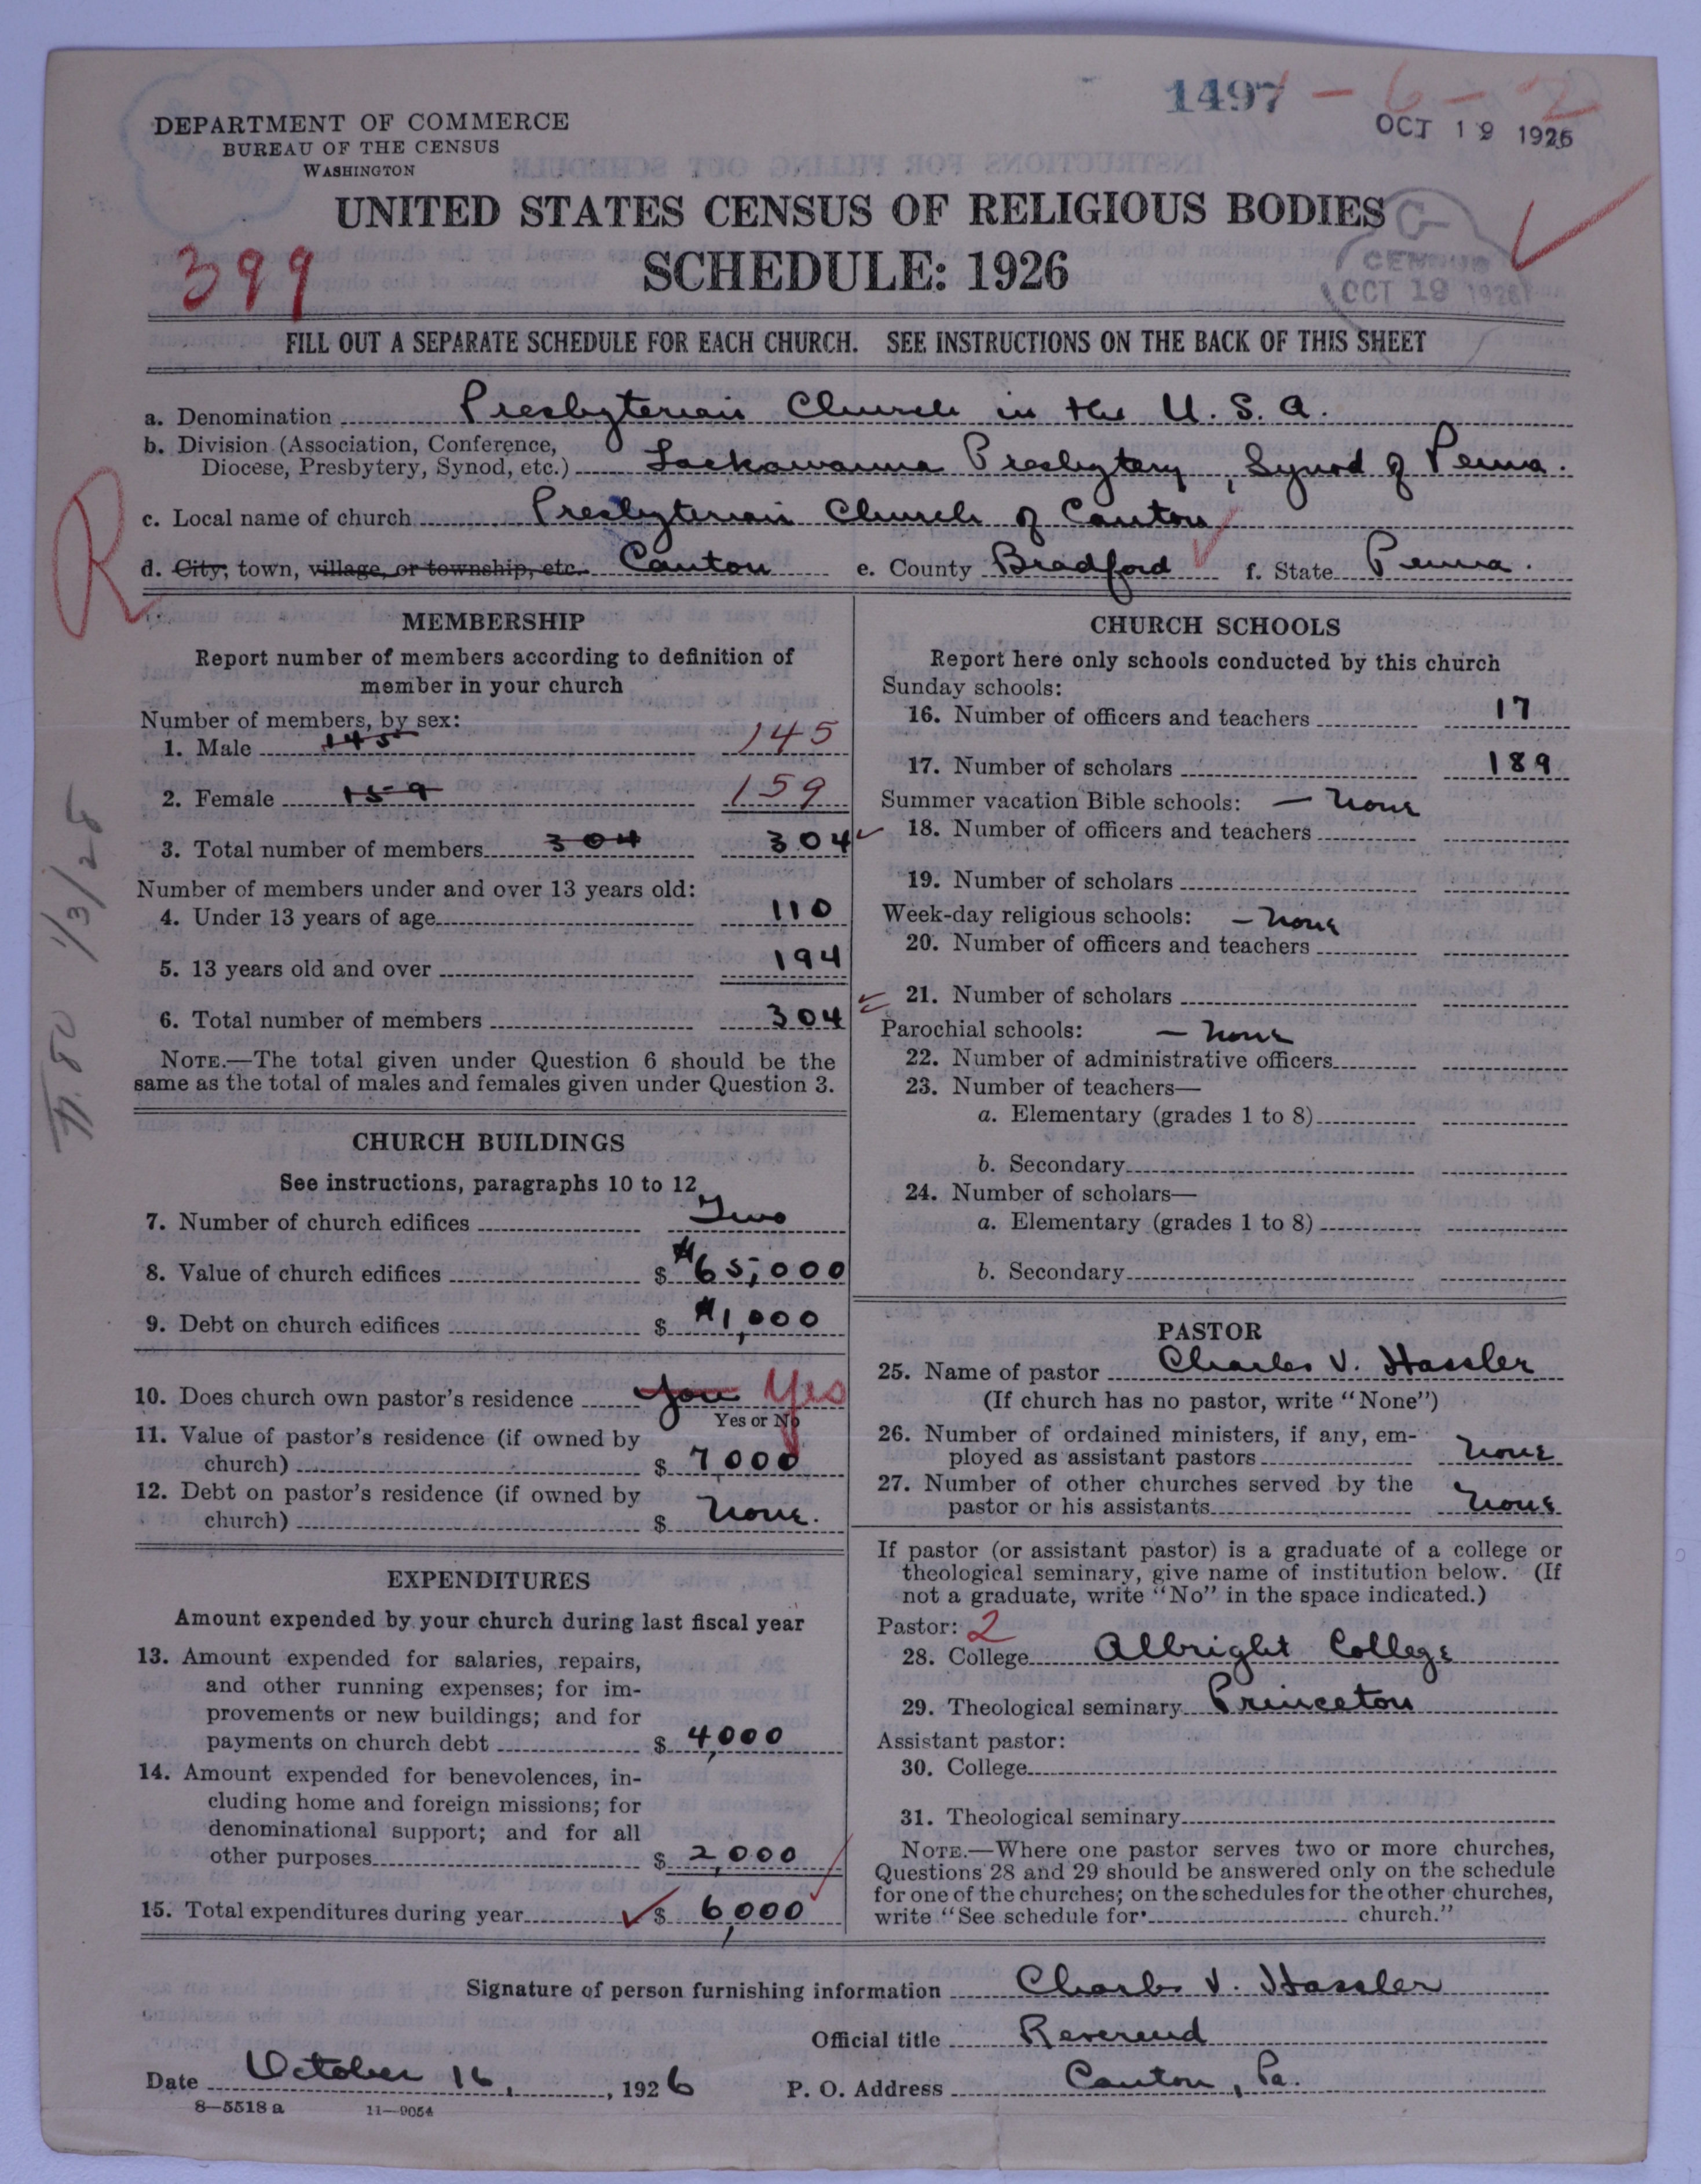 1497 - 6 - 2
OCT 19 1926
DEPARTMENT OF COMMERCE
BUREAU OF THE CENSUS
WASHINGTON
UNITED STATES CENSUS OF RELIGIOUS BODIES
SCHEDULE: 1926
399
G
CENSUS
OCT 19 1926
FILL OUT A SEPARATE SCHEDULE FOR EACH CHURCH. SEE INSTRUCTIONS ON THE BACK OF THIS SHEET
a. Denomination Presbyterian Church in the U. S. A.
b. Division (Association, Conference,
Diocese, Presbytery, Synod, etc.) Lackawanna Presbytery, Synod of Penna.
c. Local name of church Presbyterian Church of Canton
d. City, town, village, or township, etc. Canton e. County Bradford f. State Penna.
R
MEMBERSHIP
Report number of members according to definition of
member in your church
Number of members, by sex:
1. Male 145 145
2. Female 159 159
3. Total number of members 304 304
Number of members under and over 13 years old:
4. Under 13 years of age 110
5. 13 years old and over 194
6. Total number of members 304
NOTE.—The total given under Question 6 should be the
same as the total of males and females given under Question 3.
1/3/28
CHURCH BUILDINGS
See instructions, paragraphs 10 to 12
7. Number of church edifices Two
8. Value of church edifices $ $65,000
9. Debt on church edifices $ $1,000
10. Does church own pastor's residence yes Yes
Yes or No
11. Value of pastor's residence (if owned by
church) $ 7,000
12. Debt on pastor's residence (if owned by
church) $ None.
EXPENDITURES
Amount expended by your church during last fiscal year
13. Amount expended for salaries, repairs,
and other running expenses; for im-
provements or new buildings; and for
payments on church debt $ 4,000
14. Amount expended for benevolences, in-
cluding home and foreign missions; for
denominational support; and for all
other purposes $ 2,000
15. Total expenditures during year $ 6,000
CHURCH SCHOOLS
Report here only schools conducted by this church
Sunday schools:
16. Number of officers and teachers 17
17. Number of scholars 189
Summer vacation Bible schools: — None
18. Number of officers and teachers
19. Number of scholars
Week-day religious schools: — None
20. Number of officers and teachers
21. Number of scholars
Parochial schools: — None
22. Number of administrative officers
23. Number of teachers—
a. Elementary (grades 1 to 8)
b. Secondary
24. Number of scholars—
a. Elementary (grades 1 to 8)
b. Secondary
PASTOR
25. Name of pastor Charles V. Hassler
(If church has no pastor, write "None")
26. Number of ordained ministers, if any, em-
ployed as assistant pastors None
27. Number of other churches served by the
pastor or his assistants None
If pastor (or assistant pastor) is a graduate of a college or
theological seminary, give name of institution below. (If
not a graduate, write "No" in the space indicated.)
Pastor: 2
28. College Albright College
29. Theological seminary Princeton
Assistant pastor:
30. College
31. Theological seminary
NOTE.—Where one pastor serves two or more churches,
Questions 28 and 29 should be answered only on the schedule
for one of the churches; on the schedules for the other churches,
write "See schedule for church."
Signature of person furnishing information Charles V. Hassler
Official title Reverend
Date October 16, 1926 P. O. Address Canton, Pa.
8—5518 a 11—9054